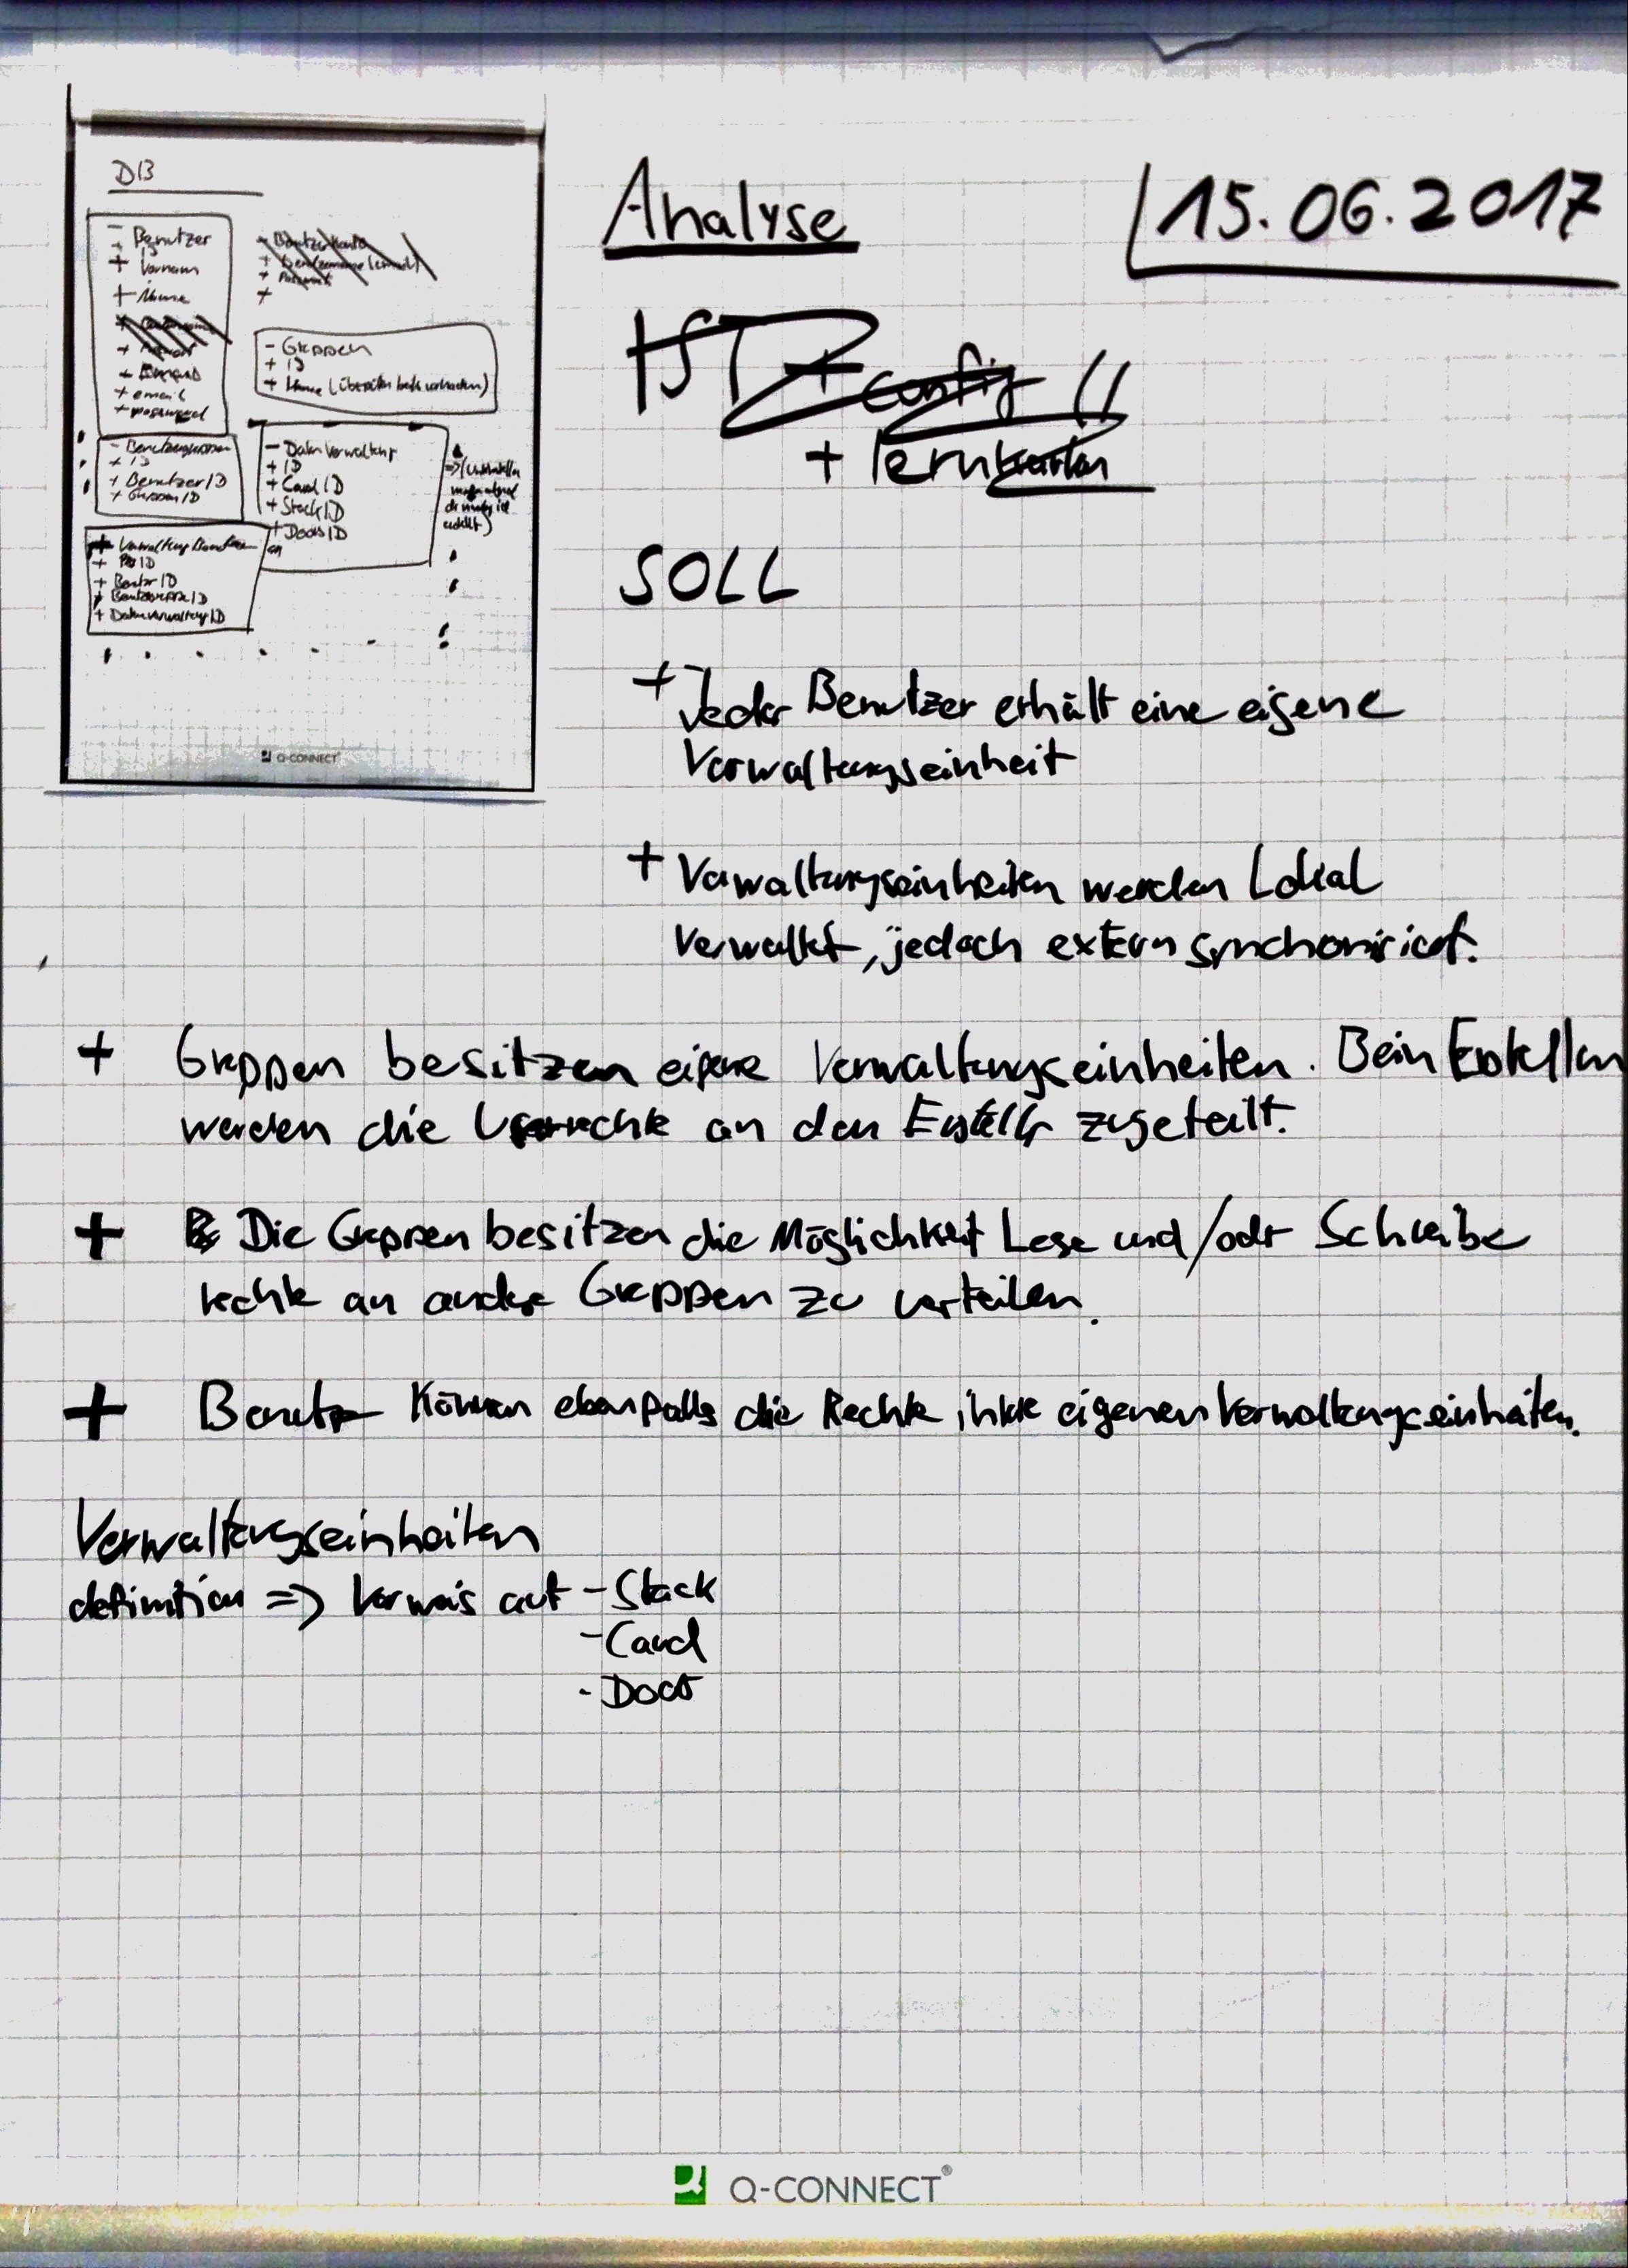 DB
- Benutzer
+ Vornam
+ Name
+ email
- Gruppen
+ ID
+ Name
- Benutzergruppen
+ ID
+ Benutzer ID
+ Gruppen ID
- Datenverwaltung
+ ID
+ Card ID
+ Stack ID
+ Docs ID
+ Datenverwaltung ID
Q-CONNECT
Analyse
15.06.2017
IST
+ config
+ lernkarten
SOLL
+ Jeder Benutzer erhält eine eigene
Verwaltungseinheit
+ Verwaltungseinheiten werden Lokal
verwaltet, jedoch extern synchonisiert.
+ Gruppen besitzen eigene Verwaltungseinheiten. Beim Erstellen
werden die an den Ersteller zugeteilt.
+ Die Gruppen besitzen die Möglichkeit Lese und/oder Schreibe
rechte an andere Gruppen zu verteilen.
+ Benutzer können ebenfalls die Rechte ihrer eigenen Verwaltungseinheiten.
Verwaltungseinheiten
definition => Verweis auf - Stack
- Card
- Docs
Q-CONNECT®